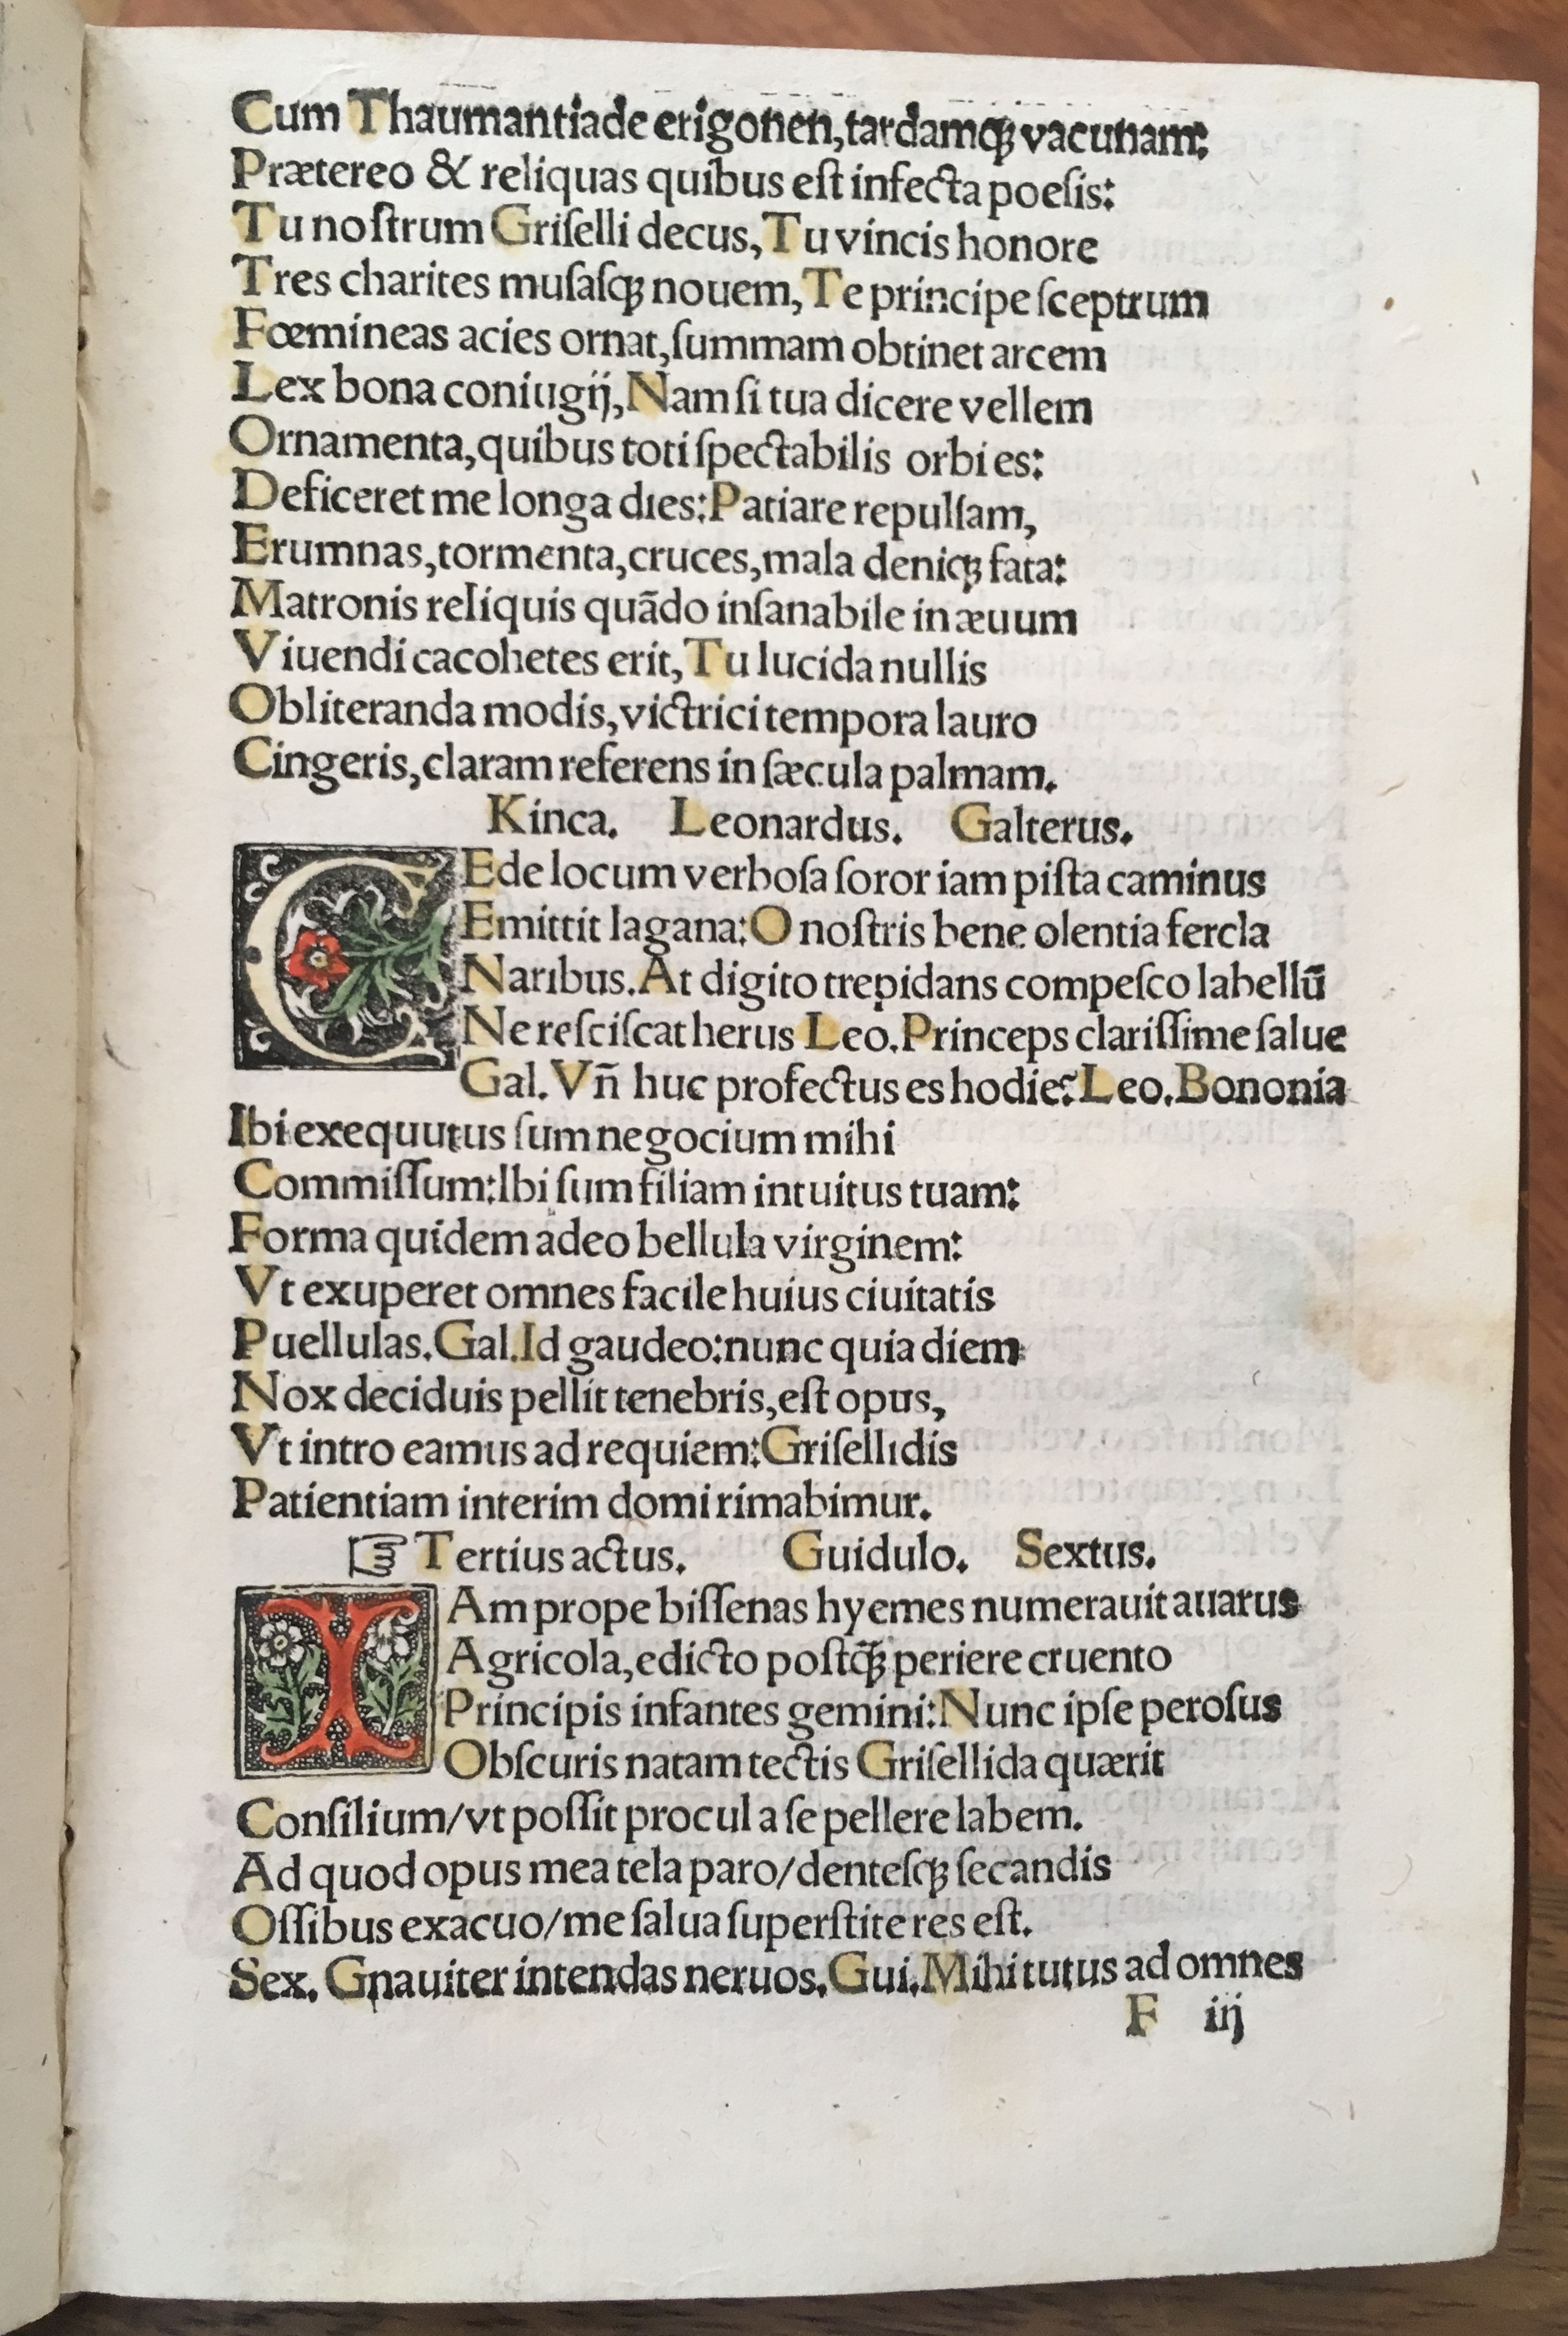 Cum Thaumantiade erigonen, tardamqꝫ vacunam:
Prætereo & reliquas quibus eſt infecta poeſis:
Tu noſtrum Griſelli decus, Tu vincis honore
Tres charites muſaſqꝫ nouem, Te principe ſceptrum
Fœmineas acies ornat, ſummam obtinet arcem
Lex bona coniugij, Nam ſi tua dicere vellem
Ornamenta, quibus toti ſpectabilis orbi es:
Deficeret me longa dies: Patiare repulſam,
Erumnas, tormenta, cruces, mala deniqꝫ fata:
Matronis reliquis quãdo inſanabile in æuum
Viuendi cacohetes erit, Tu lucida nullis
Obliteranda modis, victrici tempora lauro
Cingeris, claram referens in ſæcula palmam.
Kinca. Leonardus. Galterus.
CEde locum verboſa ſoror iam piſta caminus
Emittit lagana: O noſtris bene olentia fercla
Naribus. At digito trepidans compeſco labellũ
Ne reſciſcat herus Leo. Princeps clariſſime ſalue
Gal. Vñ huc profectus es hodie? Leo. Bononia
Ibi exequutus ſum negocium mihi
Commiſſum: Ibi ſum filiam intuitus tuam:
Forma quidem adeo bellula virginem:
Vt exuperet omnes facile huius ciuitatis
Puellulas. Gal. Id gaudeo: nunc quia diem
Nox deciduis pellit tenebris, eſt opus,
Vt intro eamus ad requiem: Griſellidis
Patientiam interim domi rimabimur.
☞ Tertius actus. Guidulo. Sextus.
IAm prope biſſenas hyemes numerauit auarus
Agricola, edicto poſtq̃ꝫ periere cruento
Principis infantes gemini: Nunc ipſe peroſus
Obſcuris natam tectis Griſellida quærit
Conſilium/vt poſſit procul a ſe pellere labem.
Ad quod opus mea tela paro/denteſqꝫ ſecandis
Oſſibus exacuo/me ſalua ſuperſtite res eſt.
Sex. Gnauiter intendas neruos. Gui. Mihi tutus ad omnes
F iij